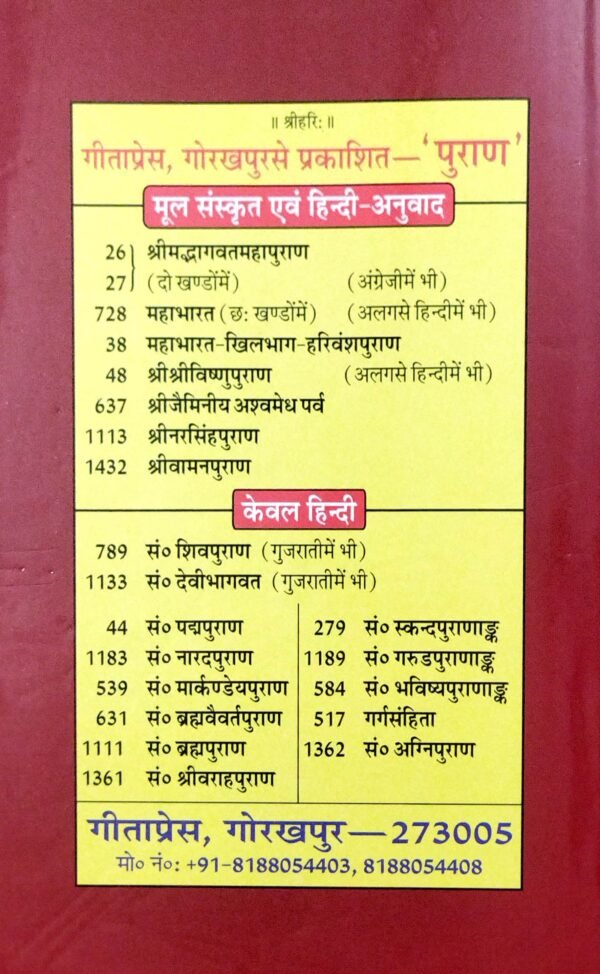 ॥ श्रीहरि: ॥
गीताप्रेस, गोरखपुरसे प्रकाशित—‘पुराण’
मूल संस्कृत एवं हिन्दी-अनुवाद
26 श्रीमद्भागवतमहापुराण
27 (दो खण्डोंमें) (अंग्रेजीमें भी)
728 महाभारत (छ: खण्डोंमें) (अलगसे हिन्दीमें भी)
38 महाभारत-खिलभाग-हरिवंशपुराण
48 श्रीश्रीविष्णुपुराण (अलगसे हिन्दीमें भी)
637 श्रीजैमिनीय अश्वमेध पर्व
1113 श्रीनरसिंहपुराण
1432 श्रीवामनपुराण
केवल हिन्दी
789 सं० शिवपुराण (गुजरातीमें भी)
1133 सं० देवीभागवत (गुजरातीमें भी)
44 सं० पद्मपुराण
1183 सं० नारदपुराण
539 सं० मार्कण्डेयपुराण
631 सं० ब्रह्मवैवर्तपुराण
1111 सं० ब्रह्मपुराण
1361 सं० श्रीवराहपुराण
279 सं० स्कन्दपुराणाङ्क
1189 सं० गरुडपुराणाङ्क
584 सं० भविष्यपुराणाङ्क
517 गर्गसंहिता
1362 सं० अग्निपुराण
गीताप्रेस, गोरखपुर—273005
मो० नं०: +91-8188054403, 8188054408